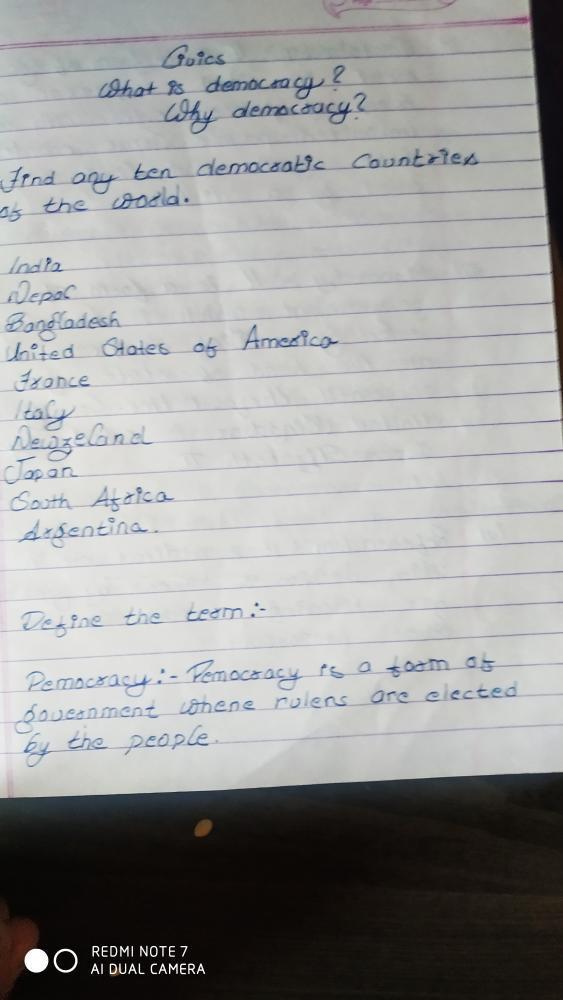 Civics
What is democracy?
Why democracy?
Find any ten democratic Countries
of the world.
India
Nepal
Bangladesh
United States of America
France
Italy
Newzeland
Japan
South Africa
Argentina.
Define the term:-
Democracy:- Democracy is a form of
government where rulers are elected
by the people.
REDMI NOTE 7
AI DUAL CAMERA